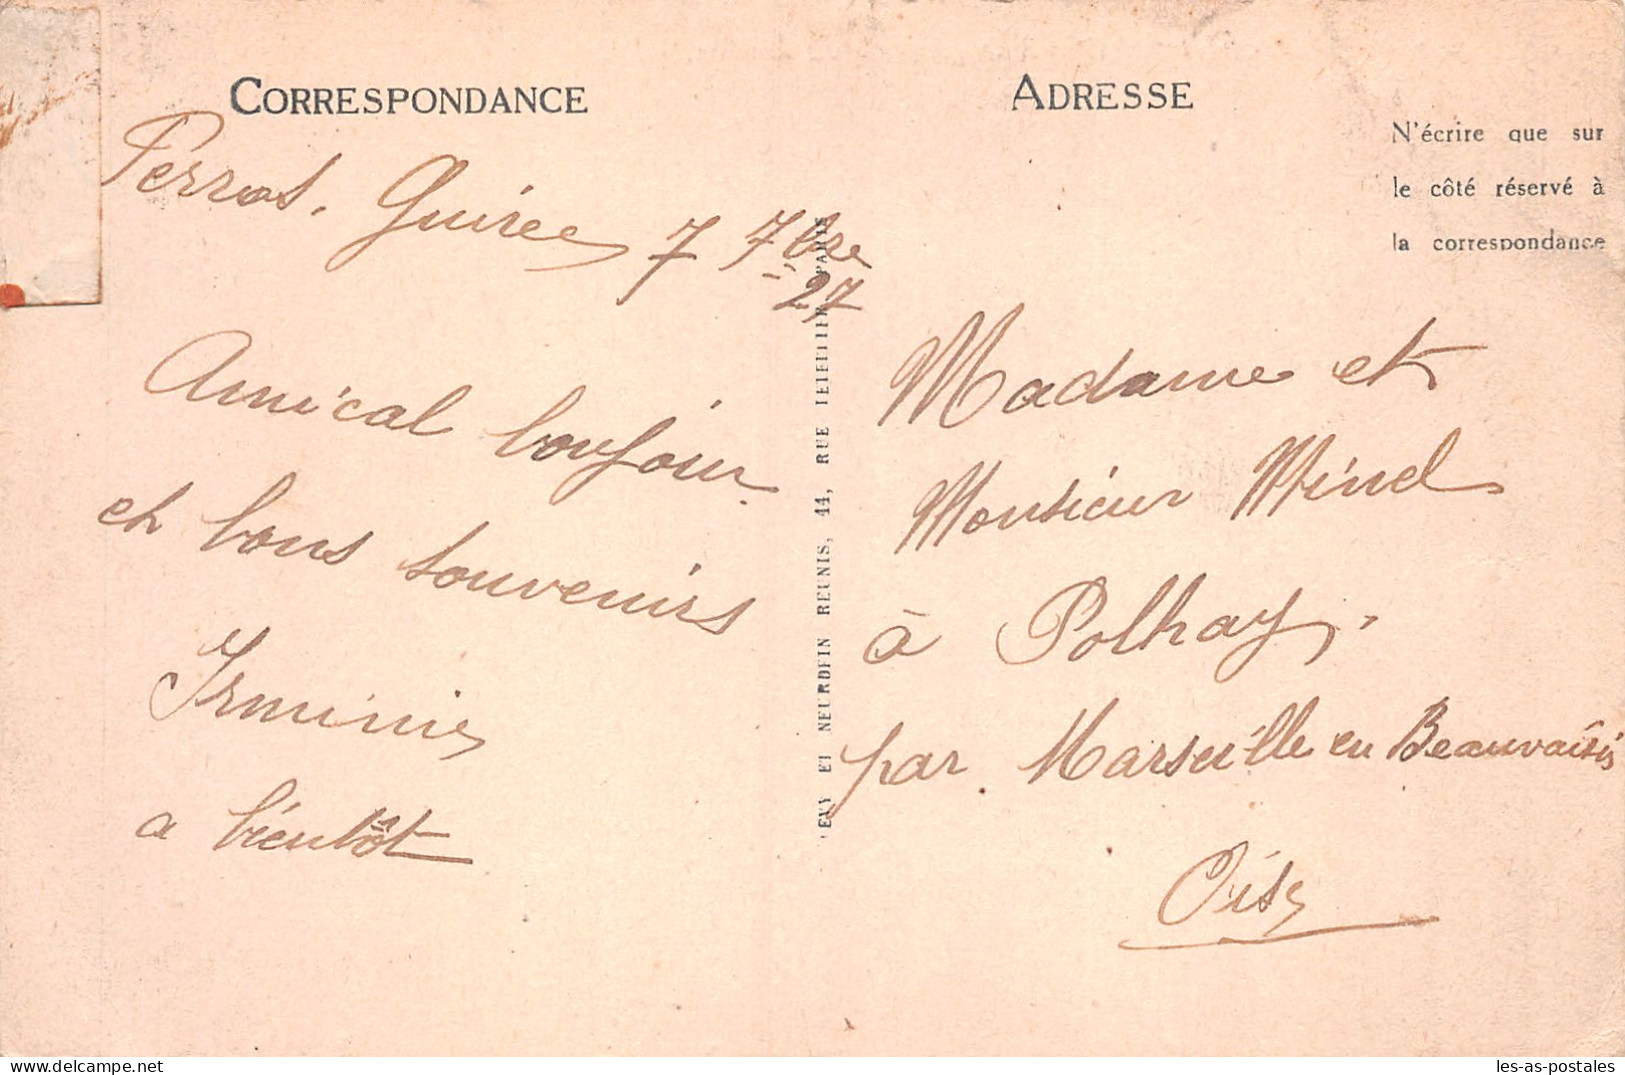 CORRESPONDANCE
Perros. Guirec 7 7bre
27
Amical bonjour
et bons souvenirs
Irminie
a bientôt
EVY ET NEURDEIN REUNIS, 44, RUE LETELLIER PARIS
ADRESSE
N'écrire que sur
le côté réservé à
la correspondance
Madame et
Monsieur Minel
à Polhay.
par Marseille en Beauvaisis
Oise
les-as-postales